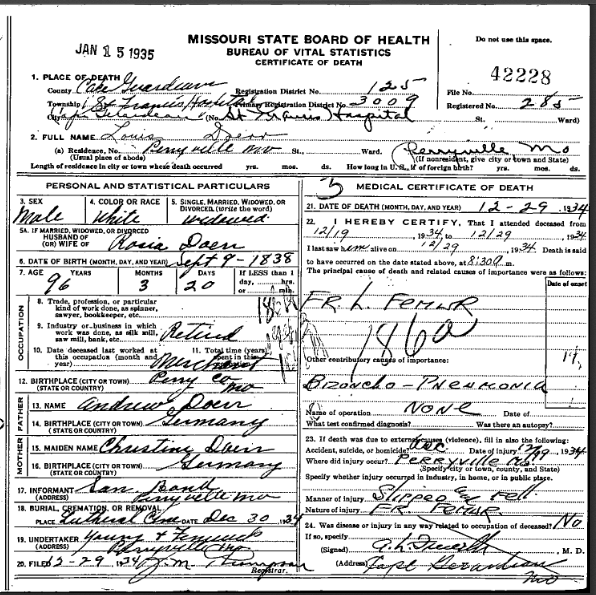 JAN 15 1935
MISSOURI STATE BOARD OF HEALTH
BUREAU OF VITAL STATISTICS
CERTIFICATE OF DEATH
Do not use this space.
42228
1. PLACE OF DEATH
County Cape Girardeau Registration District No. 125 File No.
Township St Francis Hospital Primary Registration District No. 3009 Registered No. 285
City Cape Girardeau (No. St Francis Hospital St. Ward)
2. FULL NAME Louis Doerr
(a) Residence, No. Perryville Mo St., Ward. Perryville, Mo
(Usual place of abode) (If nonresident, give city or town and State)
Length of residence in city or town where death occurred yrs. mos. ds. How long in U. S., if of foreign birth? yrs. mos. ds.
PERSONAL AND STATISTICAL PARTICULARS
3. SEX 4. COLOR OR RACE 5. SINGLE, MARRIED, WIDOWED, OR DIVORCED (write the word)
Male White widowed
5A. IF MARRIED, WIDOWED, OR DIVORCED
HUSBAND OF
(OR) WIFE OF Rosia Doerr
6. DATE OF BIRTH (MONTH, DAY, AND YEAR) Sept 9 - 1838
7. AGE YEARS MONTHS DAYS If LESS than 1 day, hrs. or min.
96 3 20
OCCUPATION
8. Trade, profession, or particular kind of work done, as spinner, sawyer, bookkeeper, etc.
9. Industry or business in which work was done, as silk mill, saw mill, bank, etc. Retired
10. Date deceased last worked at this occupation (month and year) 11. Total time (years)
Merchant
12. BIRTHPLACE (CITY OR TOWN) Perry Co
(STATE OR COUNTRY) Mo
FATHER
13. NAME Andrew Doerr
14. BIRTHPLACE (CITY OR TOWN)
(STATE OR COUNTRY) Germany
MOTHER
15. MAIDEN NAME Christine Doerr
16. BIRTHPLACE (CITY OR TOWN)
(STATE OR COUNTRY) Germany
17. INFORMANT
(ADDRESS) Perryville Mo
18. BURIAL, CREMATION, OR REMOVAL
PLACE Lutheral Cem DATE Dec 30 1934
19. UNDERTAKER Young &
(ADDRESS) Perryville Mo
20. FILED 12-29 1934 J. M. Thompson
Registrar.
MEDICAL CERTIFICATE OF DEATH
21. DATE OF DEATH (MONTH, DAY, AND YEAR) 12-29 1934
22. I HEREBY CERTIFY, That I attended deceased from
12/19 1934 to 12/29 1934
I last saw him alive on 12/29 1934. Death is said
to have occurred on the date stated above, at 8:30 m.
The principal cause of death and related causes of importance were as follows:
Date of onset
FR L. FEMUR
186a
Other contributory causes of importance:
BRONCHO-PNEUMONIA
Name of operation NONE Date of
What test confirmed diagnosis? Was there an autopsy?
23. If death was due to external causes (violence), fill in also the following:
Accident, suicide, or homicide? ACC Date of injury 12/19 1934
Where did injury occur? PERRYVILLE Mo.
(Specify city or town, county, and State)
Specify whether injury occurred in industry, in home, or in public place.
Manner of injury Slipped & Fell
Nature of injury FR. FEMUR
24. Was disease or injury in any way related to occupation of deceased? No
If so, specify
(Signed) M. D.
(Address) Cape Girardeau Mo